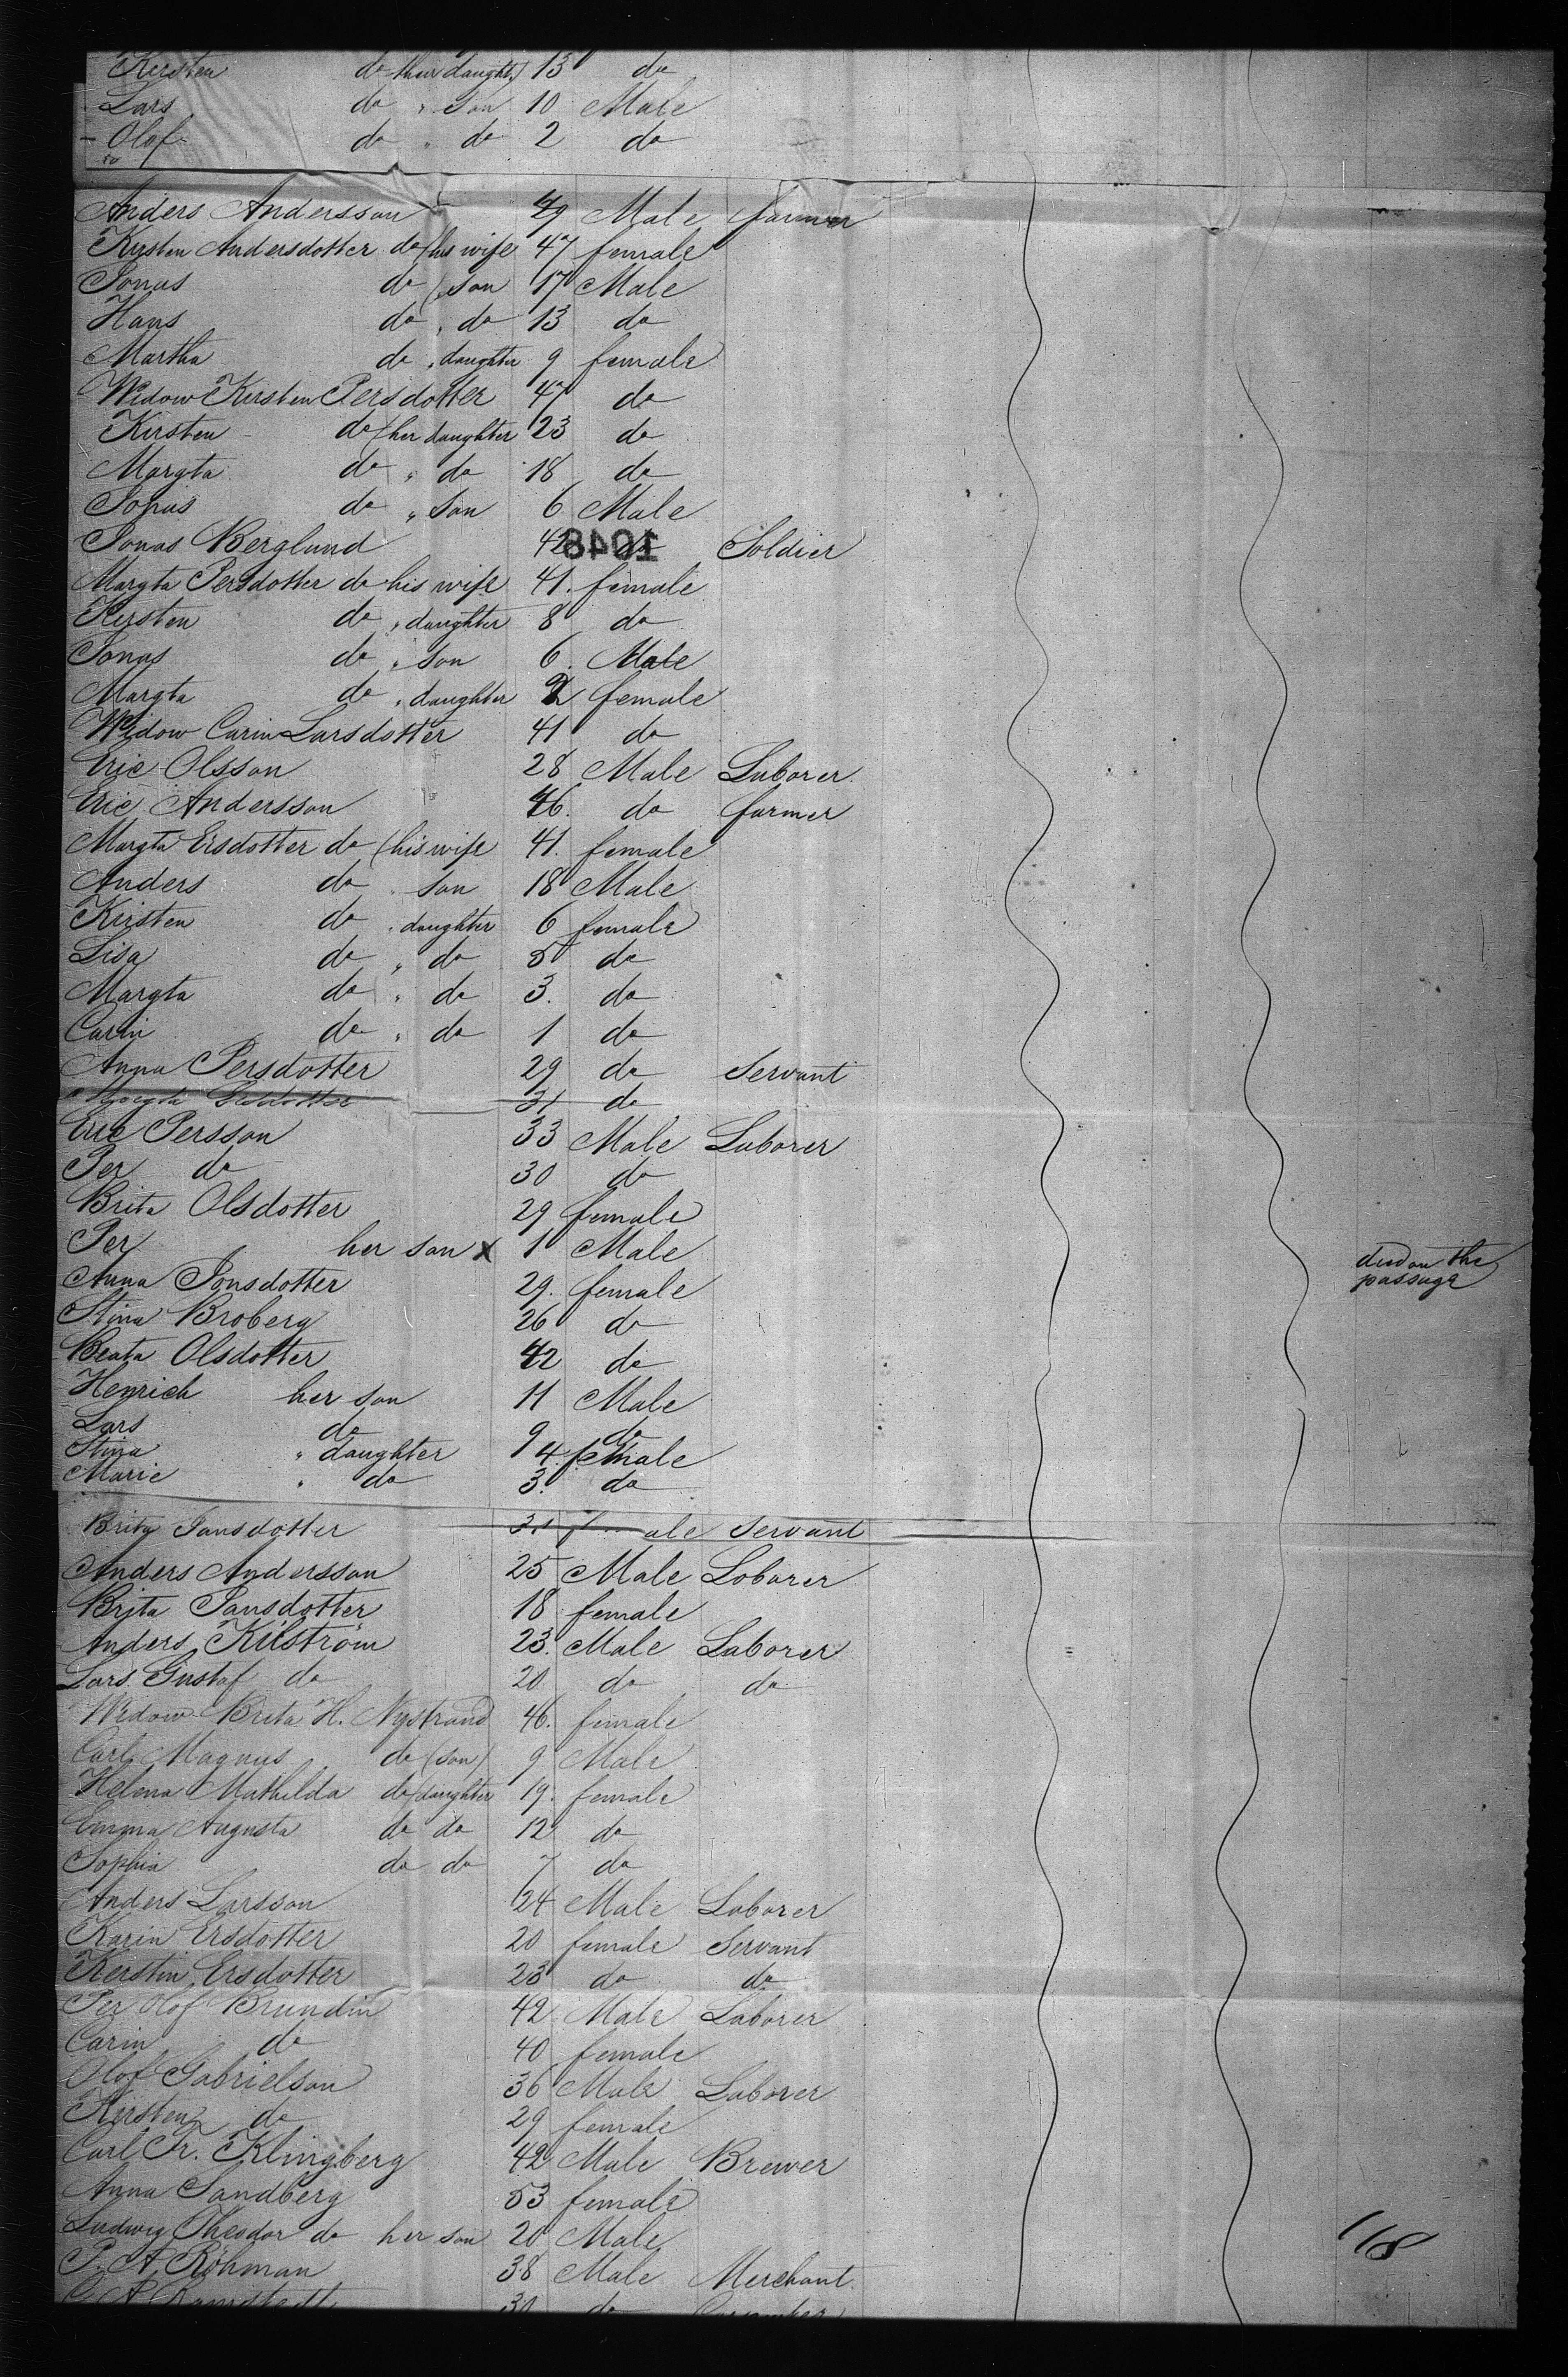 Kersten do their daught. 13 do
Lars do " Son 10 Male
Olof do " do 2 do
Anders Andersson 49 Male farmer
Kersten Andersdotter do (his wife 47 female
Jonas do " son 17 Male
Hans do " do 13 do
Martha do " daughter 9 female
Widow Kersten Persdotter 47 do
Kirsten do (her daughter 23 do
Margta do " do 18 do
Jonas do " Son 6 Male
Jonas Berglund 42 do Soldier
1048
Margta Persdotter do his wife 41. female
Kersten do " daughter 8 do
Jonas do " son 6. Male
Margta do " daughter 2 female
Widow Carin Larsdotter 41 do
Eric Olsson 28 Male Laborer
Eric Andersson 46. do farmer
Margta Ersdotter do (his wife 41. female
Anders do " son 18 Male
Kirsten do " daughter 6 female
Lisa do " do 5 do
Margta do " do 3. do
Carin do " do 1 do
Anna Persdotter 29 do Servant
31 do
Eric Persson 33 Male Laborer
Per do 30 do
Brita Olsdotter 29 female
Per her son x 1 Male died on the passage
Anna Jonsdotter 29. female
Stina Broberg 26 do
Beata Olsdotter 42 do
Henrich her son 11 Male
Lars do 9 do
Stina " daughter 4 female
Marie " do 3. do
Brita Jansdotter 31 female Servant
Anders Andersson 25 Male Loborer
Brita Jansdotter 18 female
Anders Kilström 23. Male Laborer
Lars Gustaf do 20 do do
Widow Brita H. Nystrand 46. female
Carl Magnus do (son) 9 Male
Helena Mathilda do (daughter 19. female
Emma Augusta do do 12 do
Sophia do do 7 do
Anders Larsson 24 Male Laborer
Karin Ersdotter 20 female Servant
Kerstin Ersdotter 23 do do
Per Olof Brundin 42 Male Laborer
Carin do 40 female
Olof Gabrielson 36 Male Laborer
Kersten do 29 female
Carl Fr. Klingberg 42 Male Brewer
Anna Sandberg 53 female
Ludwig Theodor do her son 20 Male
P. A. Röhman 38 Male Merchant
118